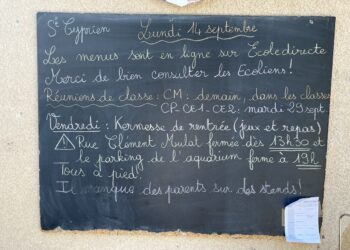 St Cyprien Lundi 14 septembre
Les menus sont en ligne sur Ecoledirecte
Merci de bien consulter les Ecoliens!
Réunions de classe: CM: demain, dans les classes
CP-CE1-CE2: mardi 29 sept.
Vendredi: Kermesse de rentrée (jeux et repas)
! Rue Clement Mulat fermée dès 13h30 et
le parking de l'aquarium fermé à 19h
Tous à pied.
Il manque des parents sur des stands!